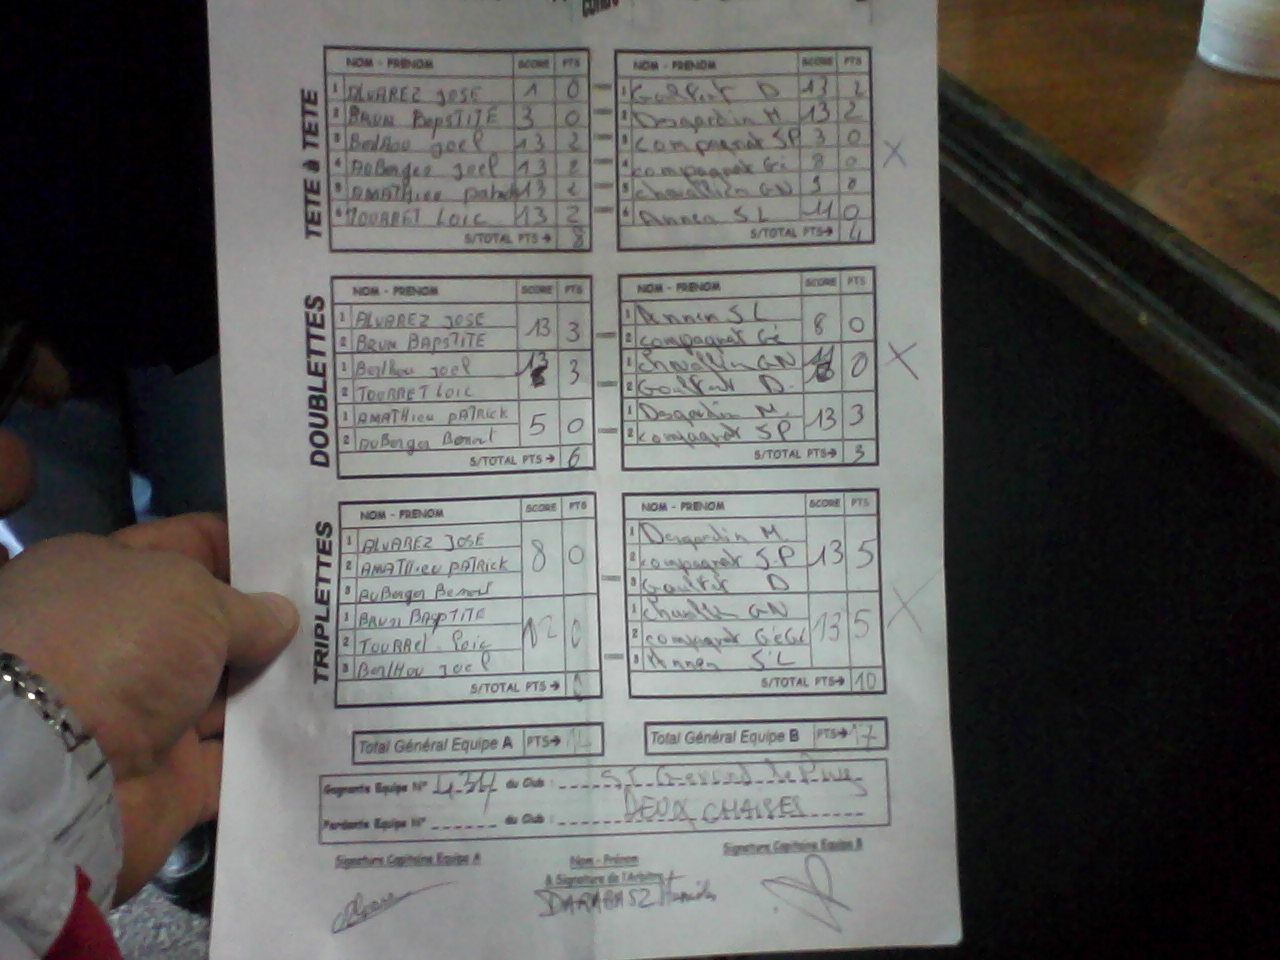 TETE à TETE
NOM - PRENOM SCORE PTS NOM - PRENOM SCORE PTS
1 ALVAREZ JOSE 1 0 1 Goulfut D 13 2
2 BRUN BAPSTITE 3 0 2 Desgardin M. 13 2
3 Berlhou joel 13 2 3 compagnat S.P 3 0
4 AuBerger joel 13 2 4 compagnat Gé 8 0
5 AMATHieu 13 2 5 GN 0
6 TOURRET LOIC 13 2 6 Annen S.L 11 0
S/TOTAL PTS→ 8 S/TOTAL PTS→ 4
DOUBLETTES
NOM - PRENOM SCORE PTS NOM - PRENOM SCORE PTS
1 ALVAREZ JOSE 13 3 1 Annen S.L 8 0
2 BRUN BAPSTITE 2 compagnat Gé
1 Berlhou joel 13 3 1 GN 0
2 TOURRET LOIC 2 D.
1 AMATHieu PATRICK 5 0 1 Desgardin M. 13 3
2 AuBerger Benoit 2 compagnat S.P
S/TOTAL PTS→ 6 S/TOTAL PTS→ 3
TRIPLETTES
NOM - PRENOM SCORE PTS NOM - PRENOM SCORE PTS
1 ALVAREZ JOSE 8 0 1 Desgardin M. 13 5
2 AMATHieu PATRICK 2 compagnat S.P
3 AuBerger Benoit 3 D
1 BRUN BAPTITE 12 0 1 GN 13 5
2 TOURRET Loic 2 compagnat GéGé
3 BerlHou joel 3 Annen S.L
S/TOTAL PTS→ 0 S/TOTAL PTS→ 10
Total Général Equipe A PTS→ 14 Total Général Equipe B PTS→ 17
Gagnante Equipe N° du Club : ST Gerand de Puy
Perdante Equipe N° du Club : DEUX CHAISES
Signature Capitaine Equipe A Nom - Prénom Signature Capitaine Equipe B
& Signature de l'Arbitre
DARABASZ